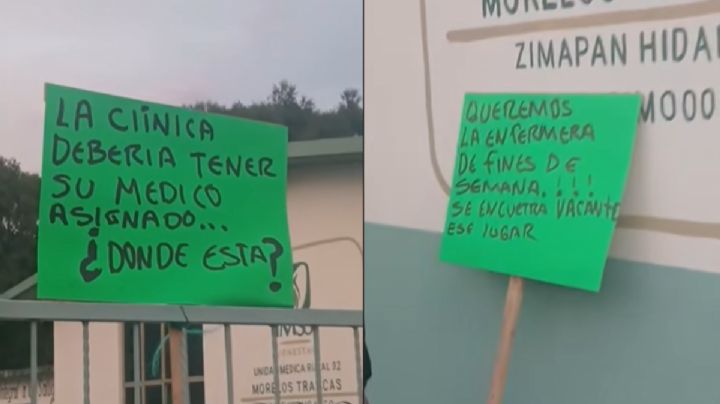 LA CLÍNICA
DEBERIA TENER
SU MEDICO
ASIGNADO...
¿DONDE ESTA?
IMSS
BIENESTAR
UNIDAD MEDICA RURAL 32
MORELOS TRANCAS
MORELOS
ZIMAPAN HIDAL
IMO00
QUEREMOS
LA ENFERMERA
DE FINES DE
SEMANA.!!!
SE ENCUETRA VACANTE
ESE LUGAR